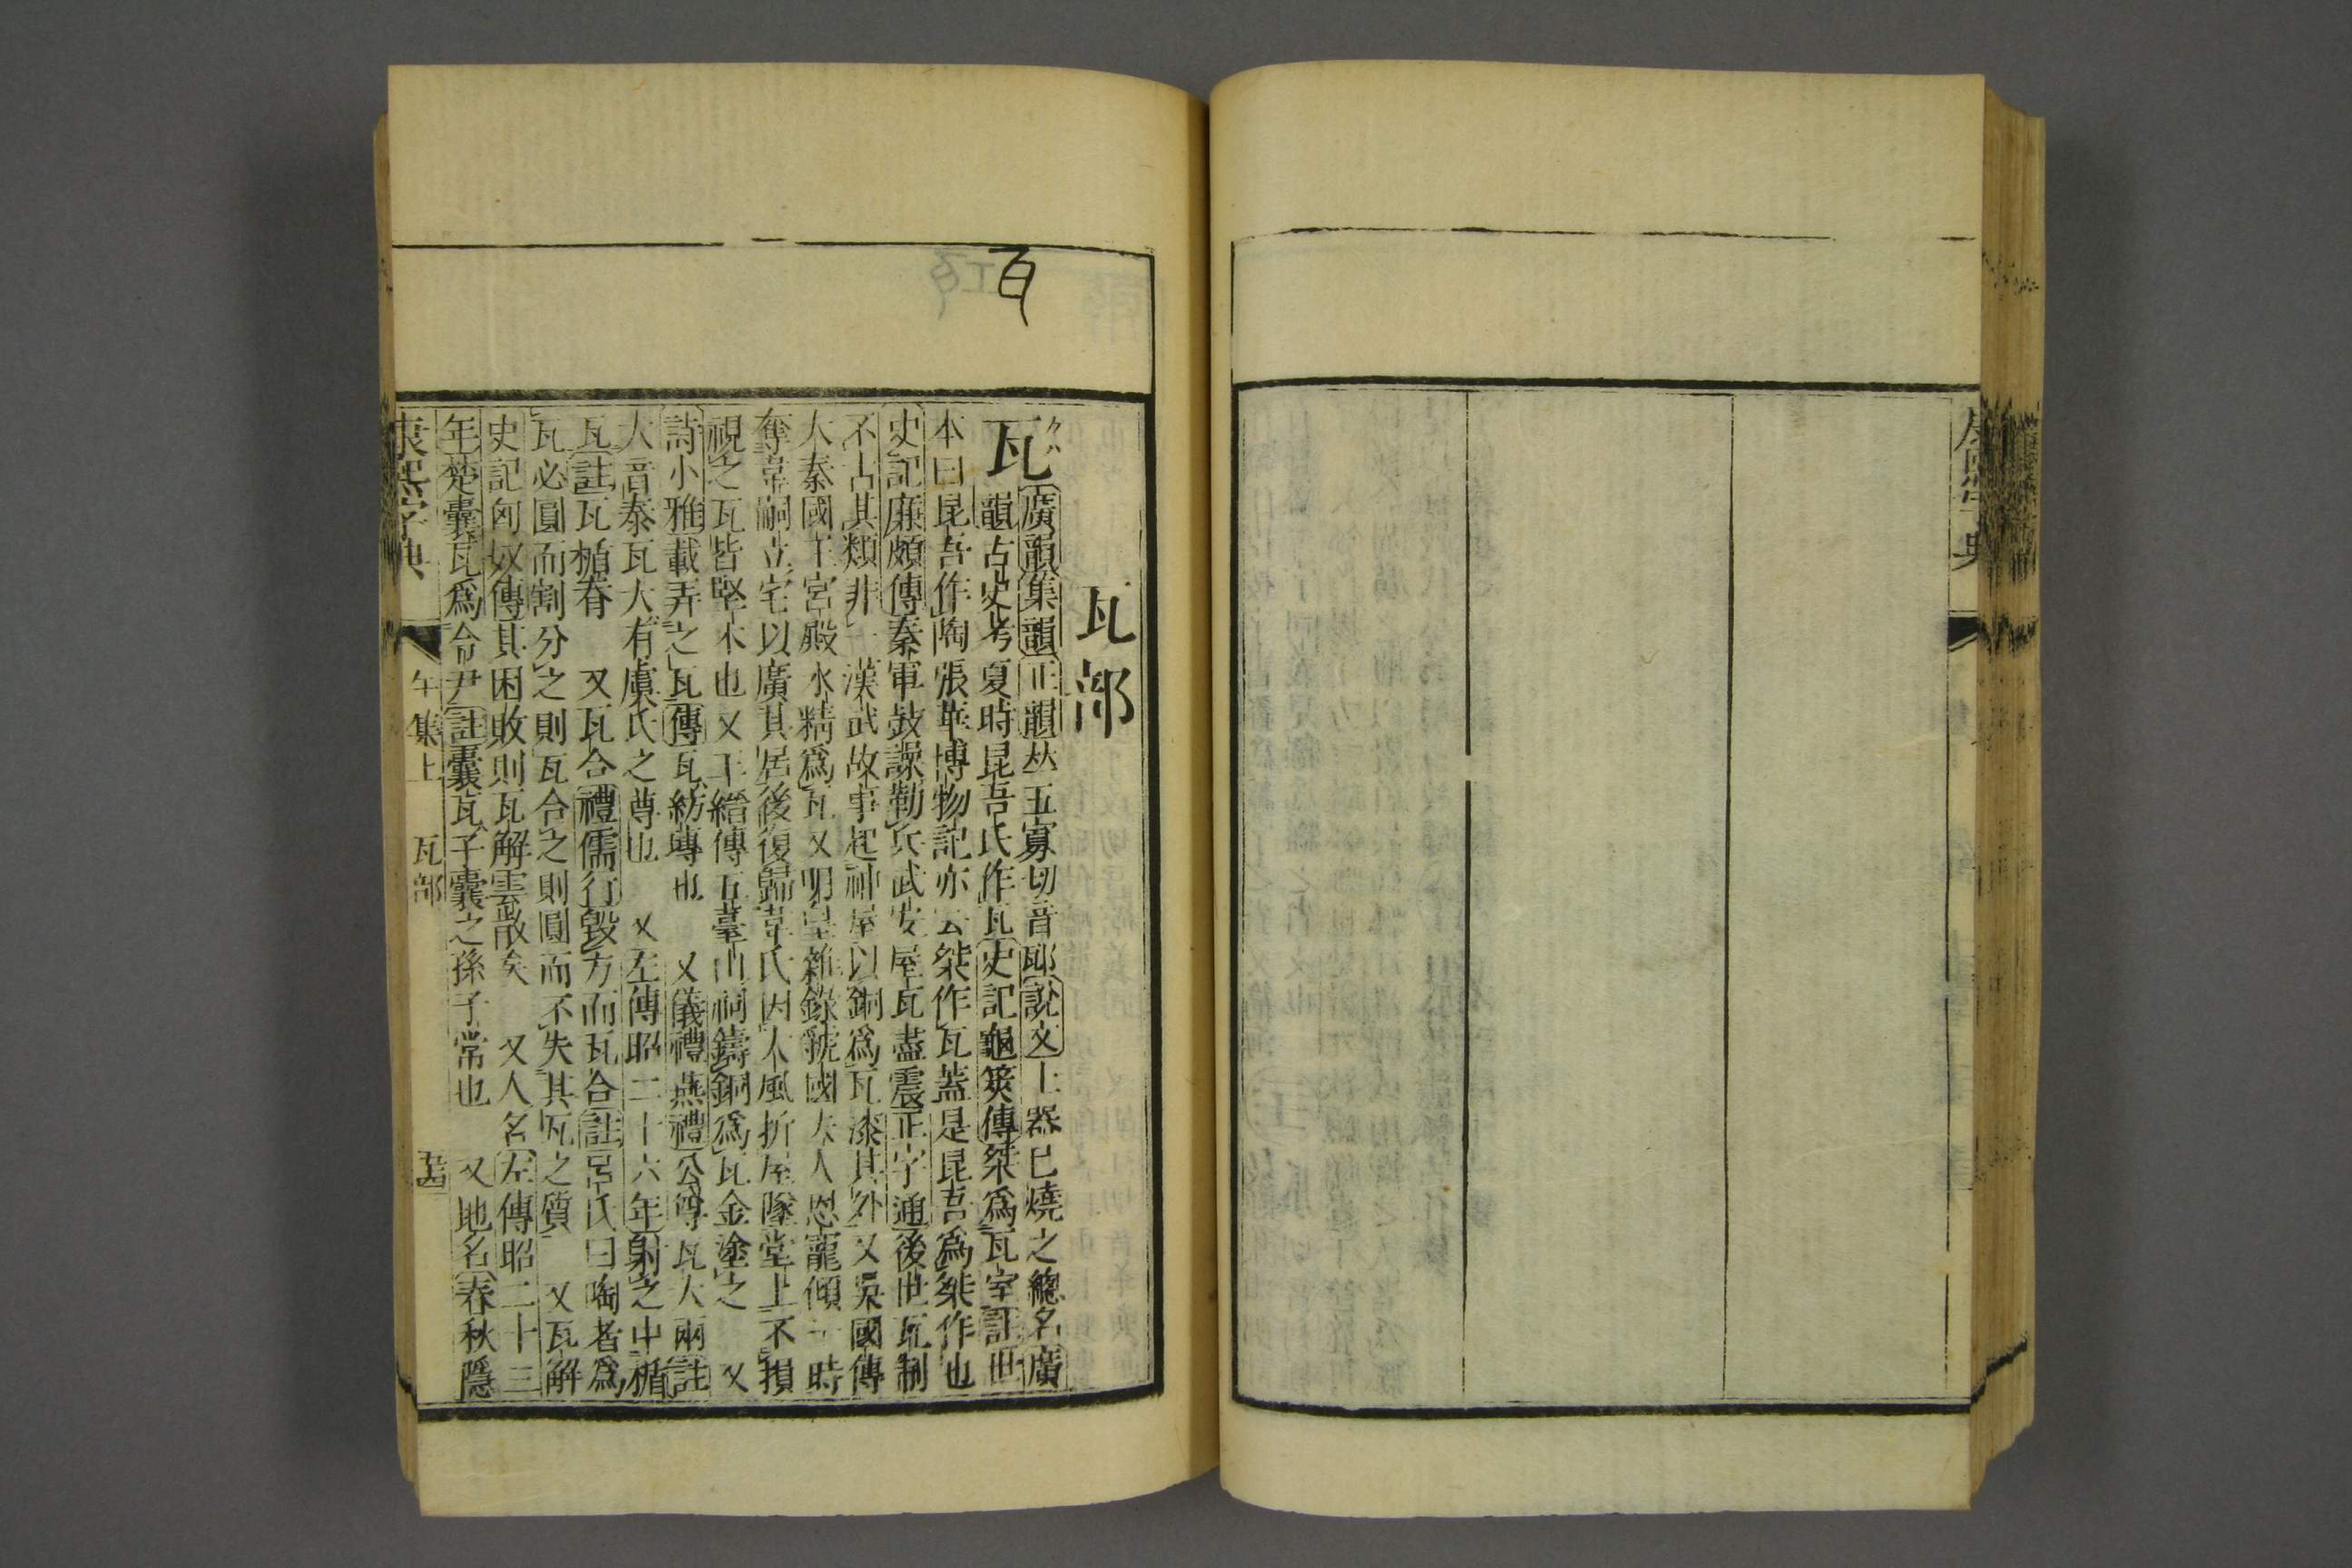 瓦部
瓦
クハ
廣韻集韻正韻𠀤五寡切音邷說文土器已燒之總名廣
韻古史考夏時昆吾氏作瓦史記龜筴傳桀爲瓦室註世
本曰昆吾作陶張華博物記亦云桀作瓦蓋是昆吾爲桀作也
史記廉頗傳秦軍鼓譟勒兵武安屋瓦盡震正字通後世瓦制
不古其類非一漢武故事起神屋以銅爲瓦漆其外又吳國傳
大秦國王宮殿水精爲瓦又明皇雜錄虢國夫人恩寵傾一時
奪韋嗣立宅以廣其居後復歸韋氏因大風折屋墜堂上不損
視之瓦皆堅木也又王縉傳五臺山祠鑄銅爲瓦金塗之 又
詩小雅載弄之瓦傳瓦紡塼也 又儀禮燕禮公尊瓦大兩註
大音泰瓦大有虞氏之尊也 又左傳昭二十六年射之中楯
瓦註瓦楯脊 又瓦合禮儒行毀方而瓦合註呂氏曰陶者爲
瓦必圓而割分之則瓦合之則圓而不失其瓦之質 又瓦解
史記匈奴傳其困敗則瓦解雲散矣 又人名左傳昭二十三
年楚囊瓦爲令尹註囊瓦子囊之孫子常也 又地名春秋隱
康熙字典 午集上 瓦部
康熙字典